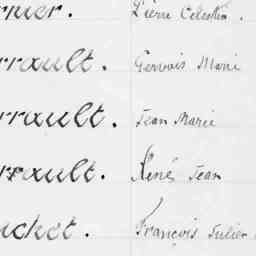 rnier. Pierre Célestin.
rrault. Gervais Marie
rrault. Jean Marie
rrault. René Jean
uchet. François Julien